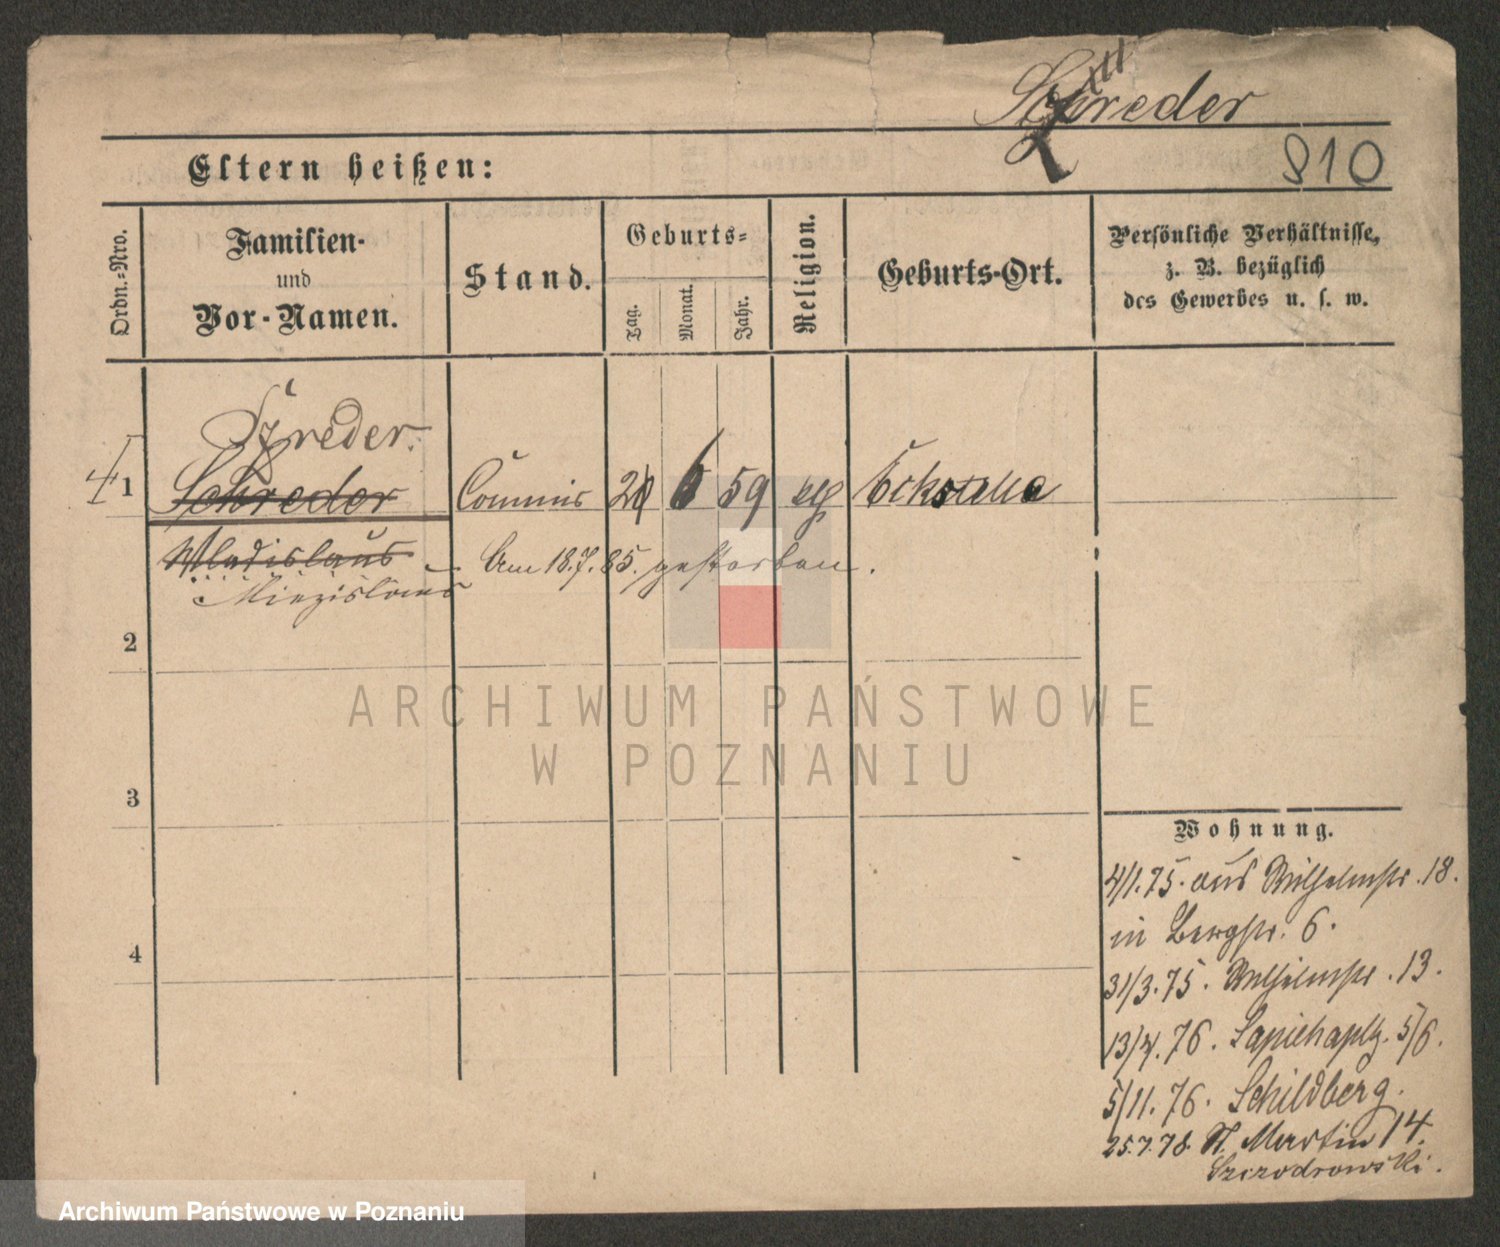 Schreder
810
Eltern heißen:
Ordn.-Nro.
Familien-
und
Vor-Namen.
Stand.
Geburts-
Tag.
Monat.
Jahr.
Religion.
Geburts-Ort.
Persönliche Verhältnisse,
z. B. bezüglich
des Gewerbes u. s. w.
Szreder.
1 Schreder Commis 6 59 Eckstelle
Wladislaus Am 18.7.85. gestorben.
Miezislaus
2
3
4
Wohnung.
4/1.75. aus Wilhelmstr. 18.
in Bergstr. 6.
31/3.75. Wilhelmstr. 13.
13/4.76. Sapiehaplz. 5/6.
5/11.76. Schildberg.
25.7.78. St. Martin 14.
Szczodrowski.
ARCHIWUM PAŃSTWOWE
W POZNANIU
Archiwum Państwowe w Poznaniu